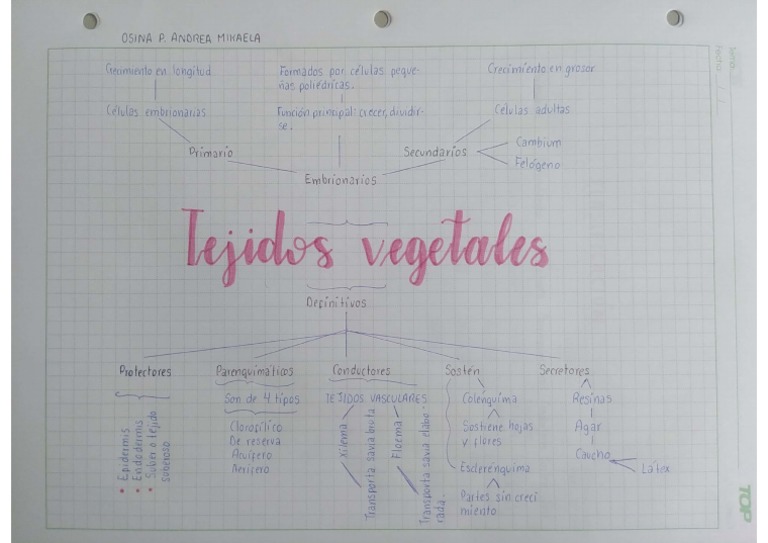 OSINA P. ANDREA MIKAELA
Crecimiento en longitud
Formados por células peque-
ñas poliédricas.
Crecimiento en grosor
Células embrionarias
Función principal: crecer, dividir-
se.
Células adultas
Primario
Secundarios
Cambium
Felógeno
Embrionarios
Tejidos vegetales
Definitivos
Protectores
Parenquimáticos
Conductores
Sostén
Secretores
Son de 4 tipos
TEJIDOS VASCULARES
Colenquima
Resinas
Clorofílico
De reserva
Acuífero
Aerífero
Sostiene hojas
y flores
Agar
Caucho
Látex
Esclerénquima
Partes sin creci
miento
• Epidermis
• Endodermis
• Suber o tejido
suberoso
Xilema
Transporta savia bruta
Floema
Transporta savia elabo-
rada.
TOP